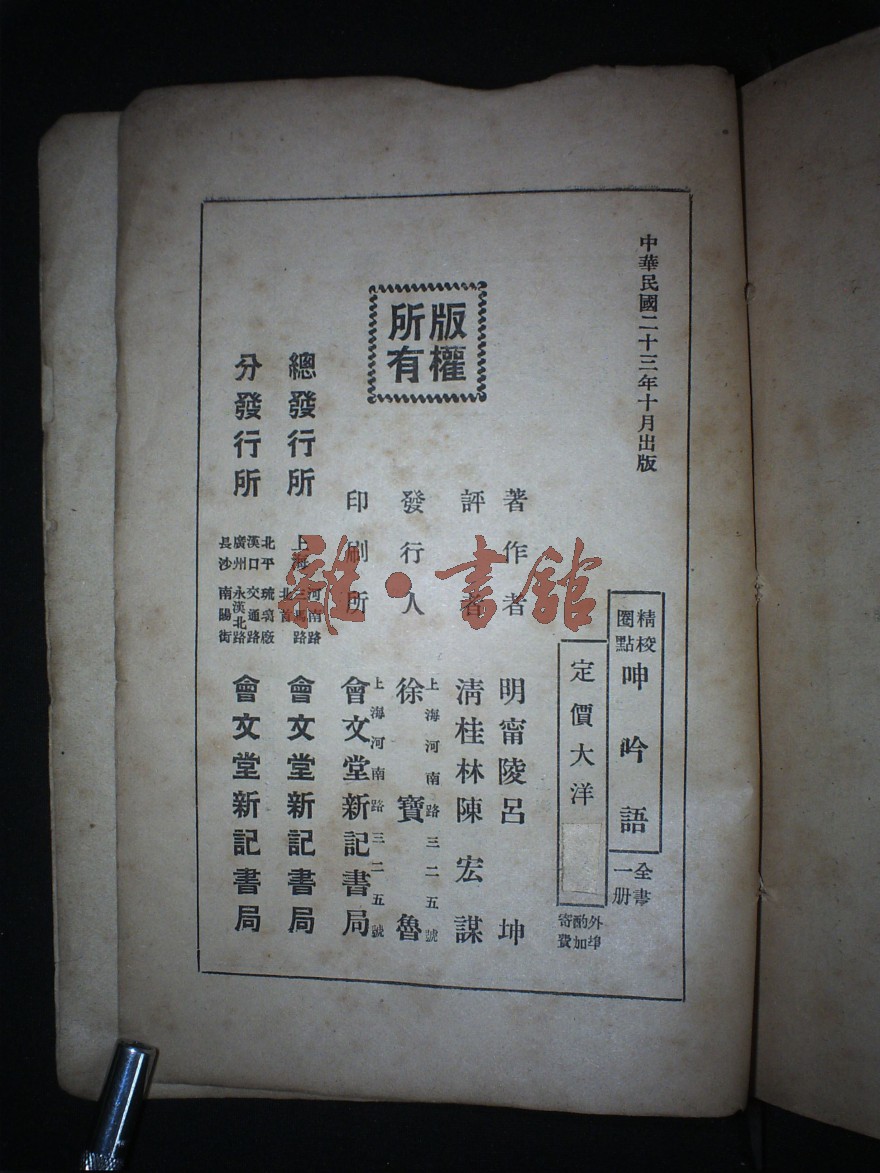 中華民國二十三年十月出版
精校
圈點
呻吟語
全書
一册
定價大洋
外埠
酌加
寄費
著作者 明甯陵呂坤
評者 清桂林陳宏謀
發行人 徐寶魯
上海河南路三二五號
印刷所 會文堂新記書局
上海河南路三二五號
版權
所有
總發行所 上海 河南路 三馬路 北首 會文堂新記書局
分發行所 會文堂新記書局
北平 琉璃廠
漢口 交通路
廣州 永漢北路
長沙 南陽街
雜·書館